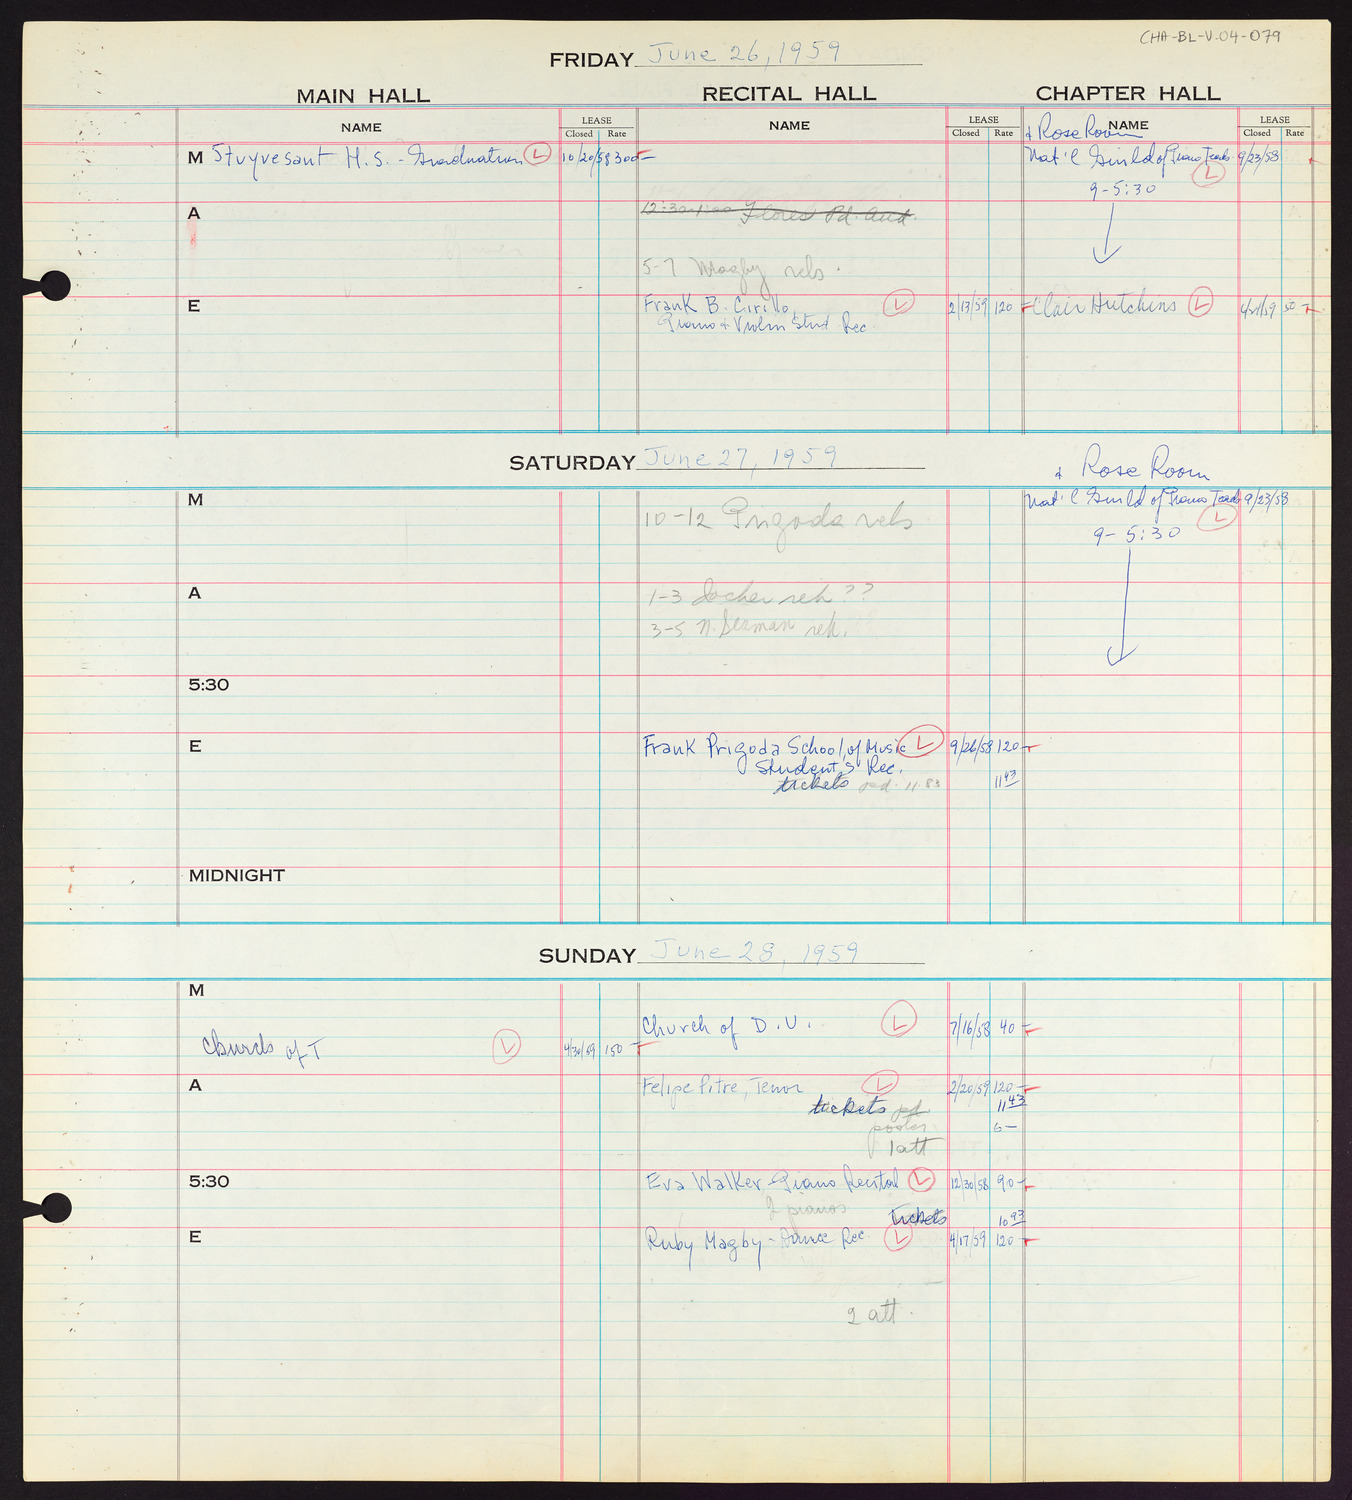 CHA-BL-V.04-079
FRIDAY June 26, 1959
MAIN HALL RECITAL HALL CHAPTER HALL
NAME LEASE Closed Rate NAME LEASE Closed Rate + Rose Room NAME LEASE Closed Rate
M Stuyvesant H.S. - Graduation L 10/20/58 300— Nat'l Guild of Piano Teach. 9/23/58
L
9-5:30
A 12:30-1:00 Flores Pd. Aud.
5-7 Magby reh.
E Frank B. Cirillo, L 2/13/59 120 Clair Hutchins L 4/21/59 50
Piano & Violin Stud Rec.
SATURDAY June 27, 1959
+ Rose Room
M Nat'l Guild of Piano Teach 9/23/58
10-12 Prigoda reh L
9-5:30
A 1-3 reh ??
3-5 N. Seaman reh.
5:30
E Frank Prigoda School of Music L 9/26/58 120—
Student's Rec.
tickets pd. 11.83 11 43
MIDNIGHT
SUNDAY June 28, 1959
M
Church of D.U. L 7/16/58 40—
Church of T L 4/30/59 150—
A Felipe Pitre, Tenor L 2/20/59 120—
tickets pd 11 43
poster 6—
1 att
5:30 Eva Walker - Piano Recital L 12/30/58 90—
2 pianos tickets 10 93
E Ruby Magby - Dance Rec. L 4/17/59 120—
2 att.